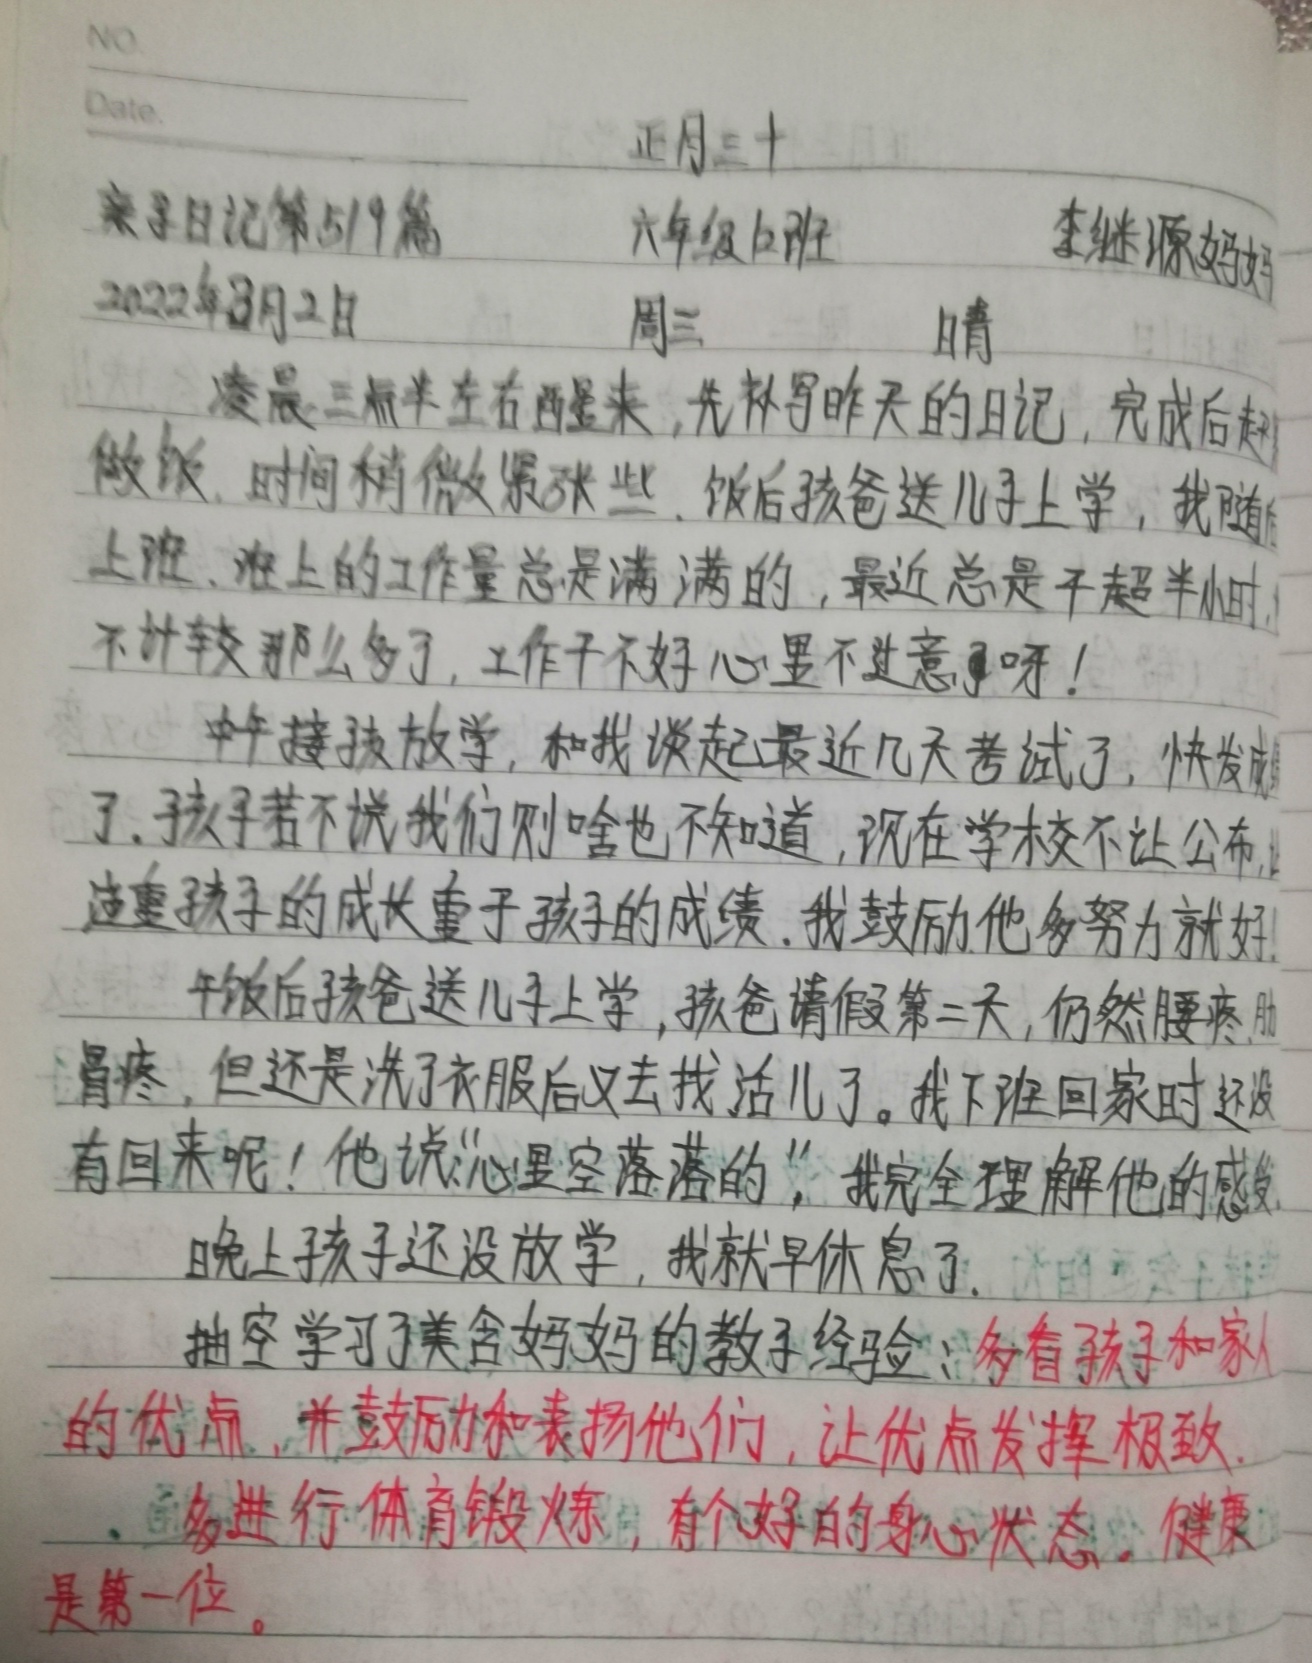 NO.
Date.
正月三十
亲子日记第519篇 六年级12班 李继源妈妈
2022年3月2日 周三 晴
凌晨三点半左右醒来,先补写昨天的日记,完成后起
做饭.时间稍微紧张些.饭后孩爸送儿子上学,我随后
上班.班上的工作量总是满满的,最近总是干超半小时,
不计较那么多了,工作干不好心里不过意了呀!
中午接孩放学,和我谈起最近几天考试了,快发成绩
了.孩子若不说我们则啥也不知道,现在学校不让公布,
注重孩子的成长重于孩子的成绩.我鼓励他多努力就好!
午饭后孩爸送儿子上学,孩爸请假第二天,仍然腰疼肋
骨疼,但还是洗了衣服后又去找活儿了。我下班回家时还没
有回来呢!他说"心里空落落的",我完全理解他的感受.
晚上孩子还没放学,我就早休息了.
抽空学习了美含妈妈的教子经验:多看孩子和家人
的优点,并鼓励和表扬他们,让优点发挥极致.
多进行体育锻炼,有个好的身心状态.健康
是第一位。